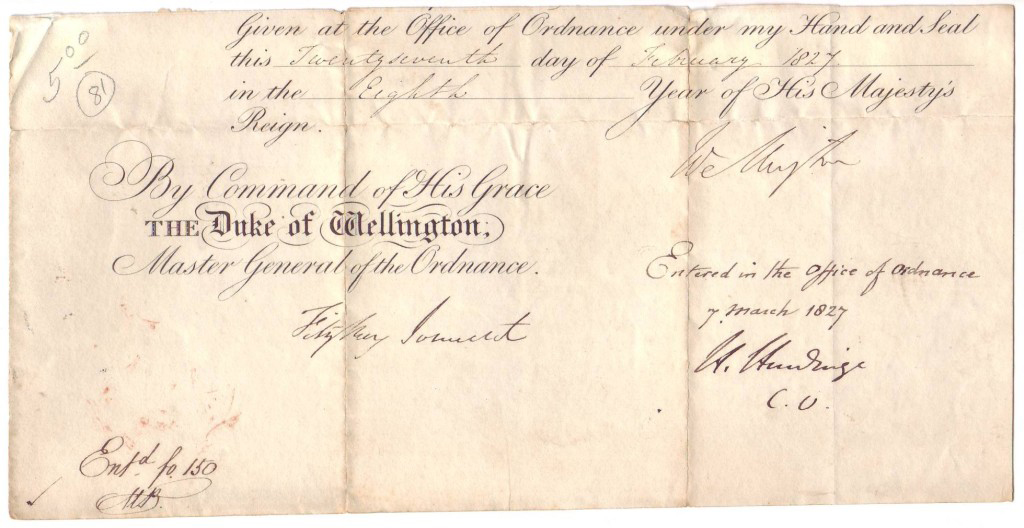 Given at the Office of Ordnance under my Hand and Seal
this Twentyseventh day of February 1827
in the Eighth Year of His Majesty's
Reign.
5 00
81
Wellington
By Command of His Grace
THE Duke of Wellington,
Master General of the Ordnance.
Fitzroy Somerset
Entered in the Office of Ordnance
7 March 1827
H. Hardinge
C. O.
Entd. fo. 150